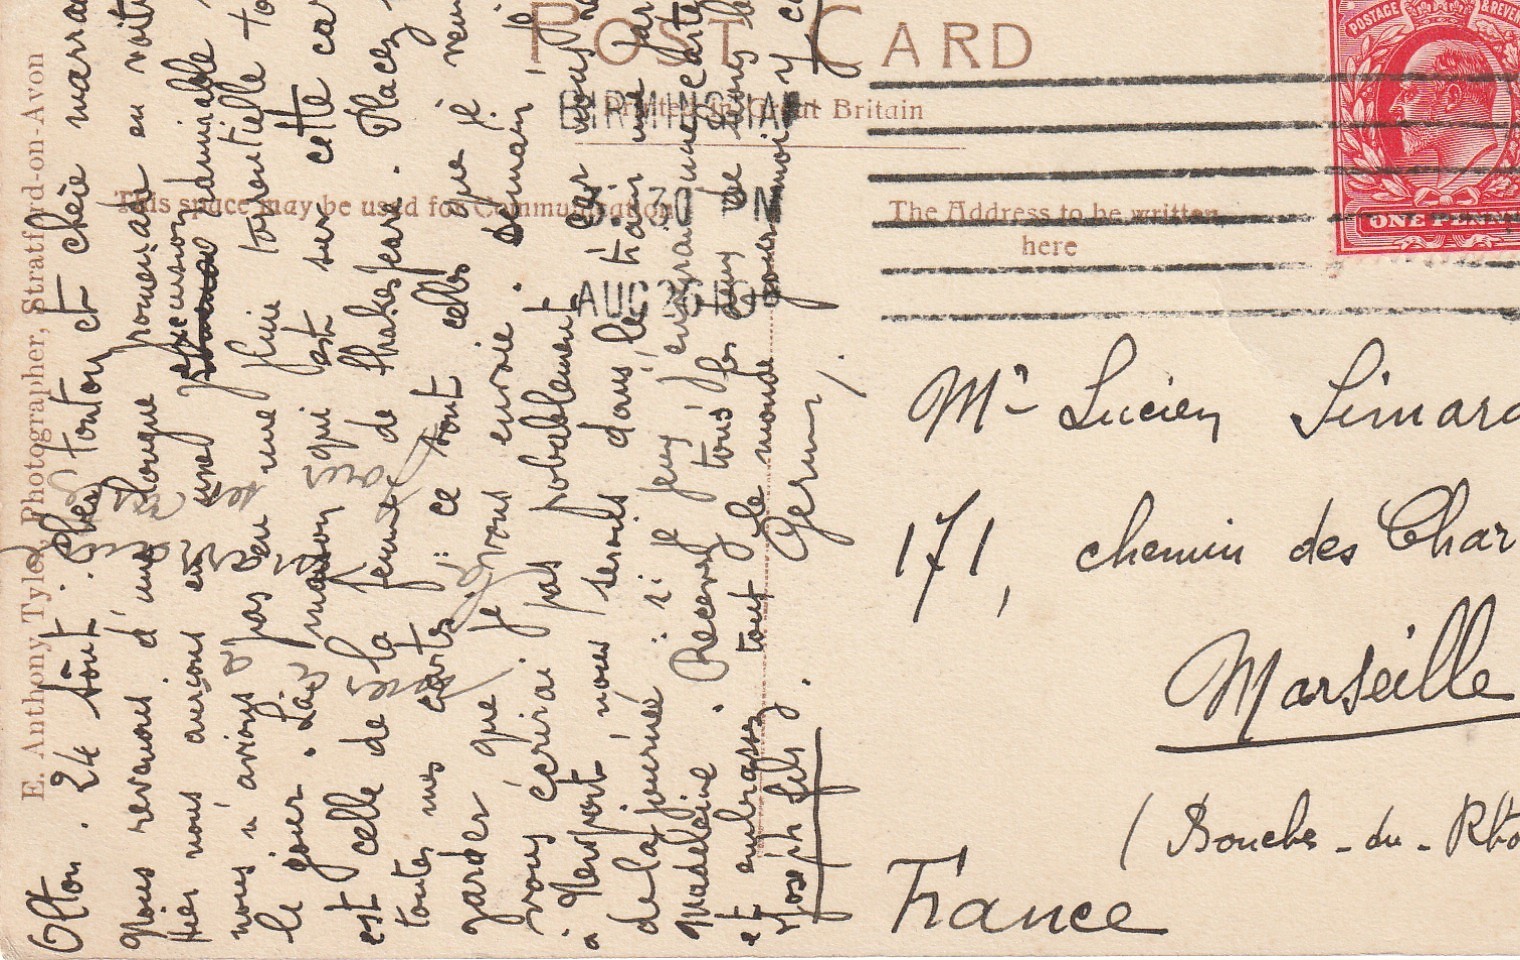 POST CARD
Printed in Great Britain
BIRMINGHAM
5.30 PM
AUG 26 10
This space may be used for Communication
The Address to be written
here
POSTAGE & REVEN
ONE PENNY
E. Anthony Tyler, Photographer, Stratford-on-Avon
Olton. 24 août. Cher tonton et chère marra
Nous revenons d'une longue promenade en voit
Hier nous aurions eu une excursion admirable
nous n'avions pas eu une pluie torrentielle to
le jour. La maison qui est sur cette ca
est celle de la femme de Shakespeare. Placez
toutes mes cartes: ce sont celles que je veux
garder que je vous envoie. Demain je
vous écrirai pas probablement car nous
à Newport, nous serons dans le train une par
de la journée: si je peux j'enverrai une carte
Madeleine. Recevez tous les deux de bons
et embrassez tout le monde pour moi
Joseph fils. Germ
Mr Lucien Simard
171, chemin des Char
Marseille
(Bouches-du-Rhô
France